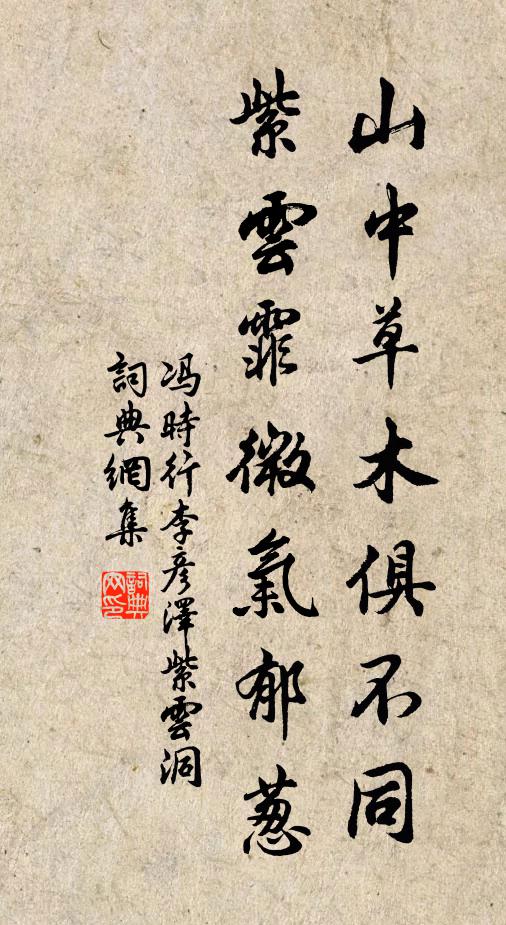 山中草木俱不同
紫雲霏微氣郁蔥
冯時行李彦澤紫雲洞
詞典網集
詞典网印